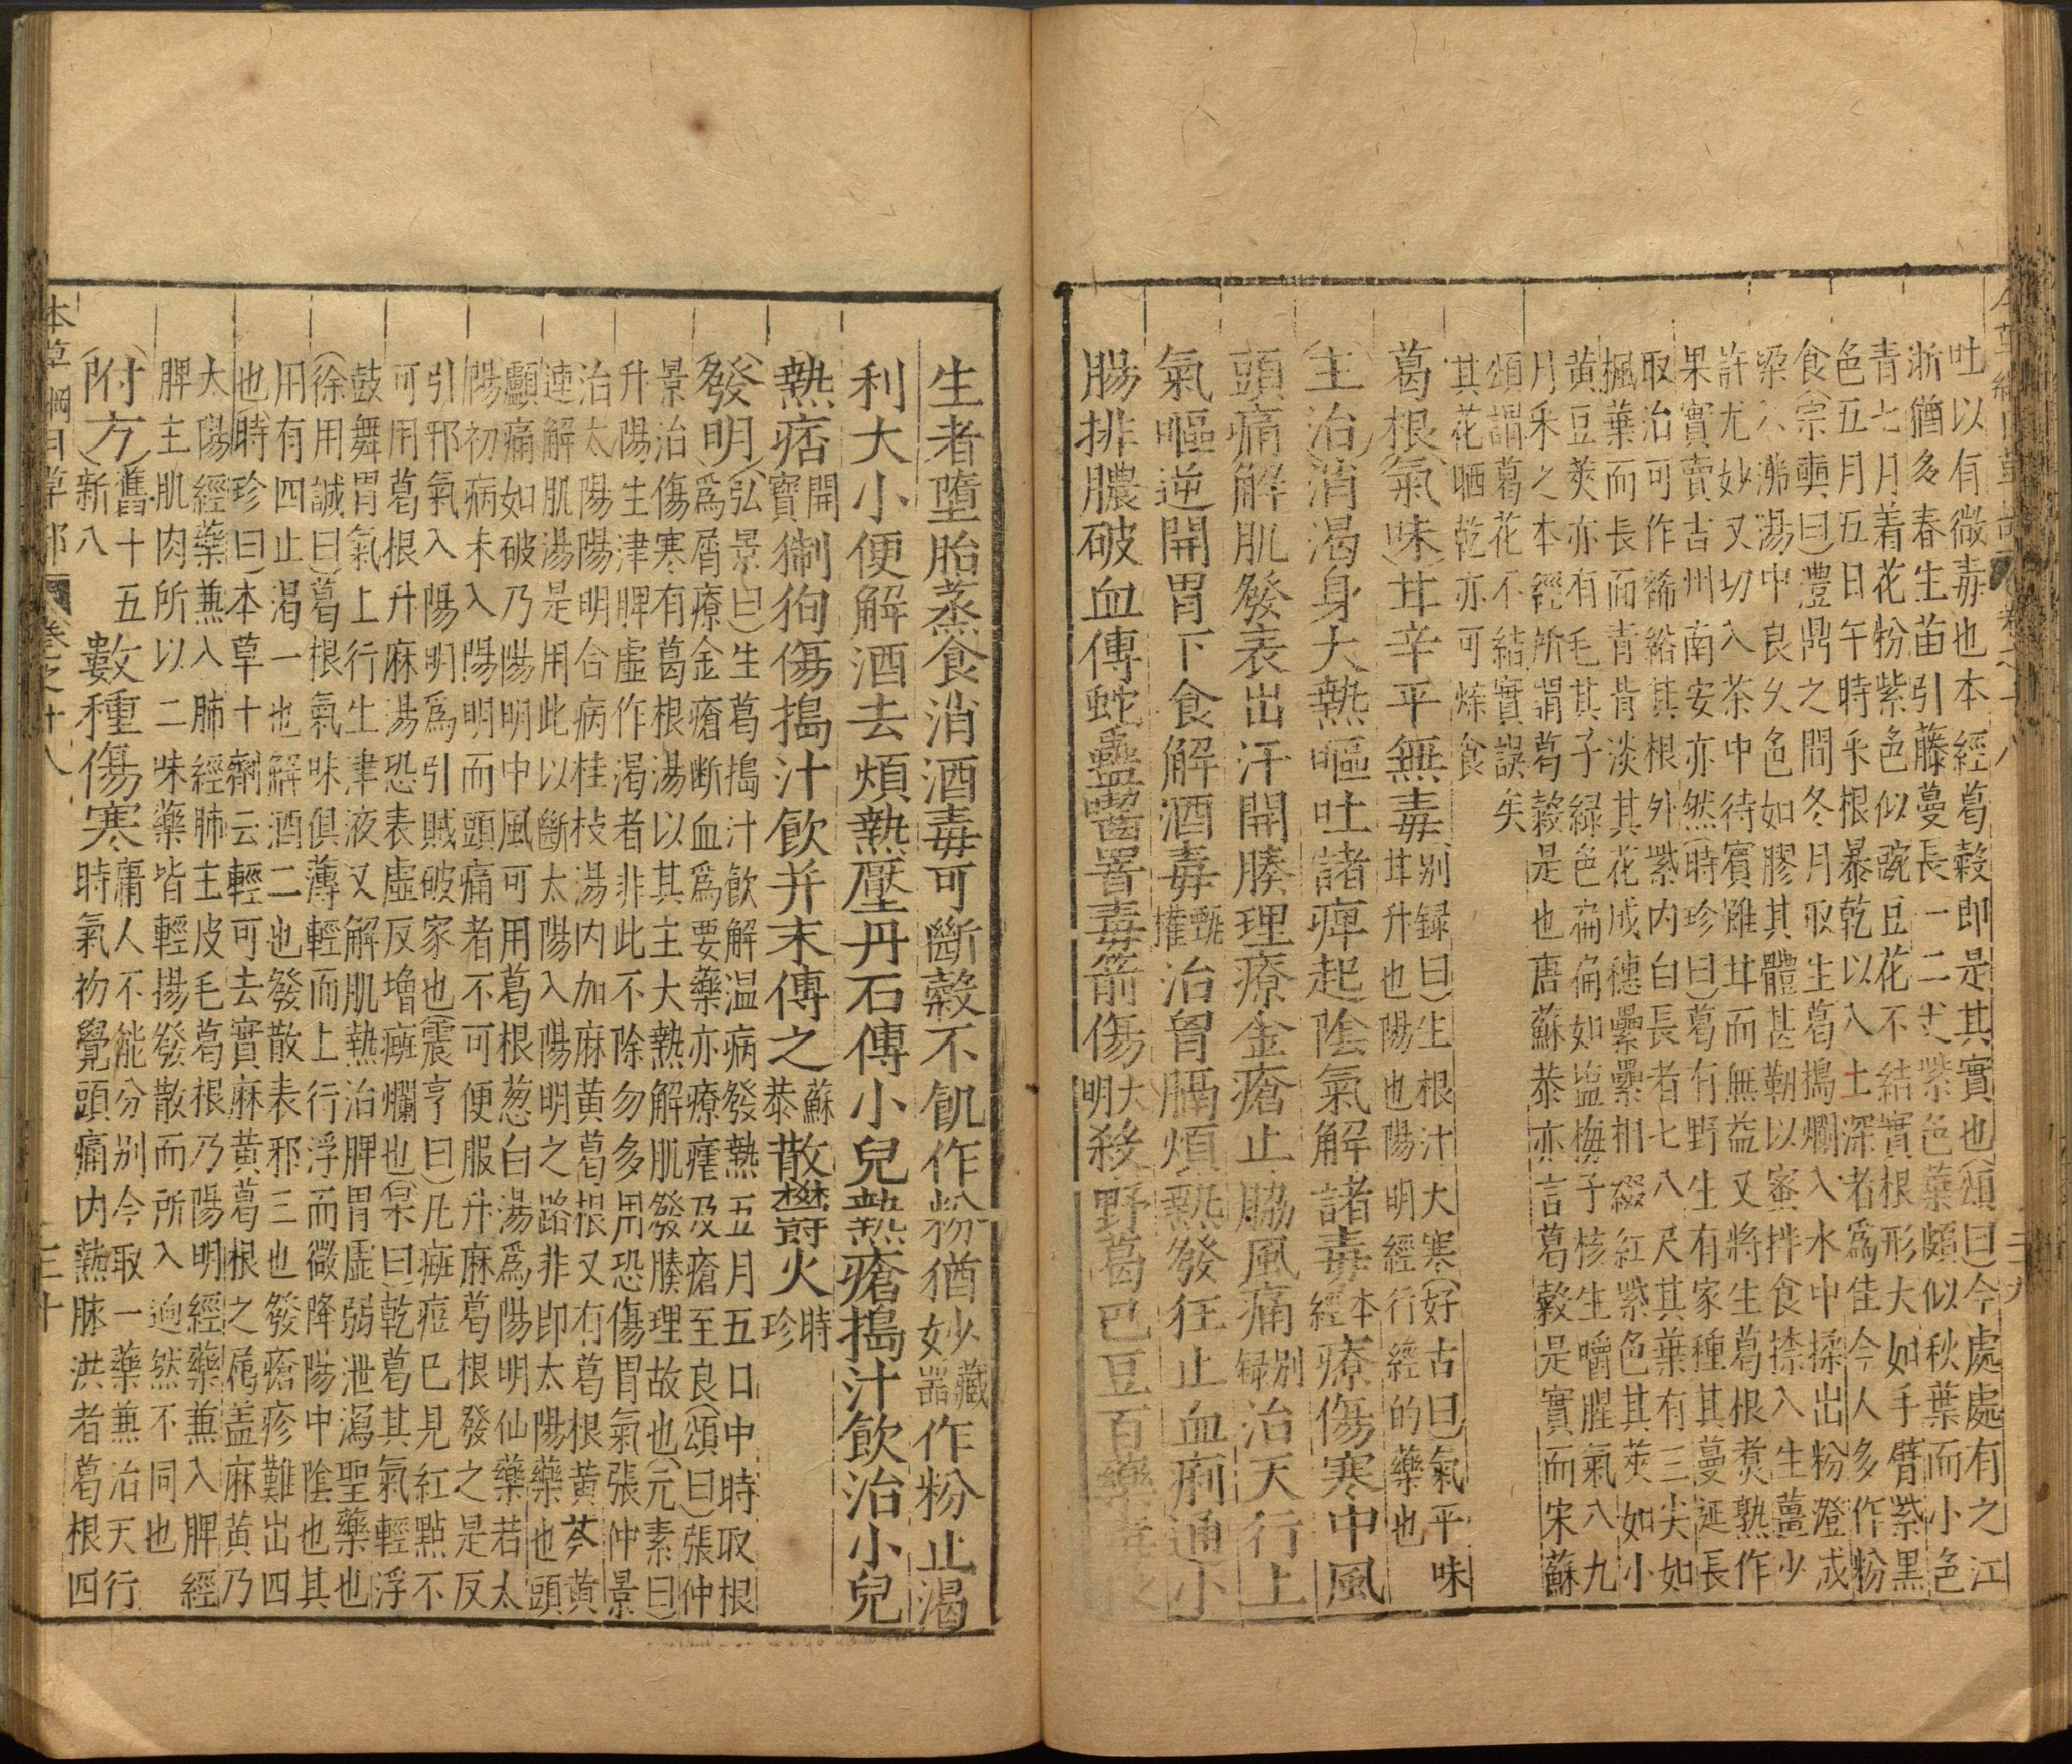 吐以有微毒也本經葛穀即是其實也(頌曰)今處處有之江
浙猶多春生苗引藤蔓長一二丈紫色葉頗似秋葉而小色
青七月着花粉紫色似豌豆花不結實根形大如手臂紫黑
色五月五日午時采根暴乾以入土深者爲佳今人多作粉
食(宗奭曰)灃鼎之間冬月取生葛搗爛入水中揉出粉澄成
粱入沸湯中良久色如膠其體甚韌以蜜拌食捺入生薑少
許尤妙又切入茶中待賓雖甘而無益又將生葛根煑熟作
果實賣吉州南安亦然(時珍曰)葛有野生有家種其蔓延長
取治可作絺綌其根外紫内白長者七八尺其葉有三尖如
楓葉而長面青背淡其花成穗纍纍相綴紅紫色其莢如小
黃豆莢亦有毛其子緑色扁扁如盐梅子核生嚼腥氣八九
月采之本經所謂葛穀是也唐蘇恭亦言葛穀是實而宋蘇
頌謂葛花不結實誤矣
其花晒乾亦可煠食
葛根(氣味)甘辛平無毒 (别録曰)生根汁大寒(好古曰)氣平味
甘升也陽也陽明經行經的藥也
(主治)消渴身大熱嘔吐諸痺起陰氣解諸毒本經療傷寒中風
頭痛解肌發表出汗開腠理療金瘡止脇風痛别録治天行上
氣嘔逆開胃下食解酒毒甄權治胷膈煩熱發狂止血痢通小
腸排膿破血傅蛇蟲囓罯毒箭傷大明殺野葛巴豆百藥毒之
生者墮胎蒸食消酒毒可斷穀不飢作粉猶妙藏器作粉止渴
利大小便解酒去煩熱壓丹石傅小兒熱瘡搗汁飲治小兒
熱痞開寶猘狗傷搗汁飲并末傅之蘇恭散鬱火時珍
(發明)(弘景曰)生葛搗汁飲解温病發熱五月五日中時取根
爲屑療金瘡断血爲要藥亦療瘧及瘡至良(頌曰)張仲
景治傷寒有葛根湯以其主大熱解肌發腠理故也(元素曰)
升陽生津脾虛作渴者非此不除勿多用恐傷胃氣張仲景
治太陽陽明合病桂枝湯内加麻黃葛根又有葛根黃芩黃
連解肌湯是用此以斷太陽入陽明之路非即太陽藥也頭
顱痛如破乃陽明中風可用葛根葱白湯爲陽明仙藥若太
陽初病未入陽明而頭痛者不可便服升麻葛根發之是反
引邪氣入陽明爲引賊破家也(震亨曰)凡癍痘已見紅點不
可用葛根升麻湯恐表虛反增癍爛也(杲曰)乾葛其氣輕浮
鼓舞胃氣上行生津液又解肌熱治脾胃虛弱泄瀉聖藥也
(徐用誠曰)葛根氣味俱薄輕而上行浮而微降陽中陰也其
用有四止渴一也解酒二也發散表邪三也發瘡疹難出四
也(時珍曰)本草十劑云輕可去實麻黃葛根之属盖麻黃乃
太陽經藥兼入肺經肺主皮毛葛根乃陽明經藥兼入脾經
脾主肌肉所以二味藥皆輕揚發散而所入迥然不同也
(附方)舊十五新八 數種傷寒 庸人不能分别今取一藥兼治天行
時氣初覺頭痛内熱脉洪者葛根四
本草綱目草部 卷之十八 三十